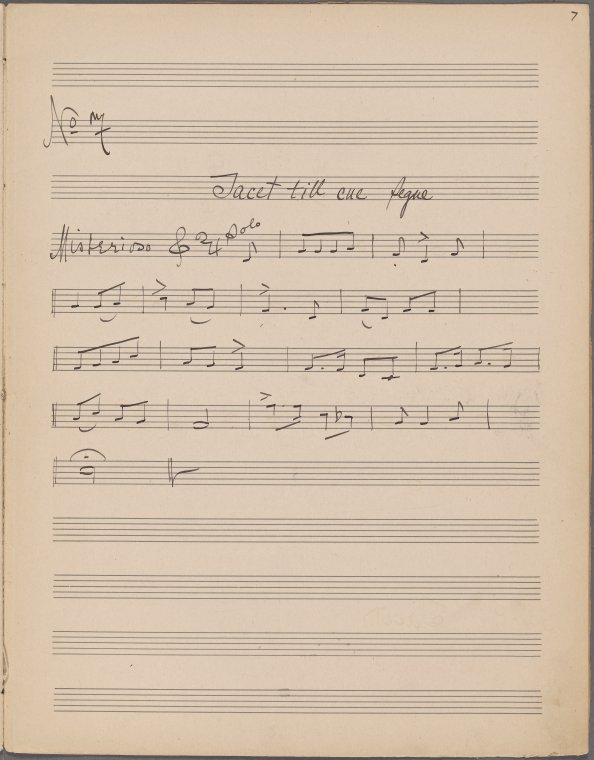 7
No 7
Tacet till cue Segue
Misterioso 2/4 Solo